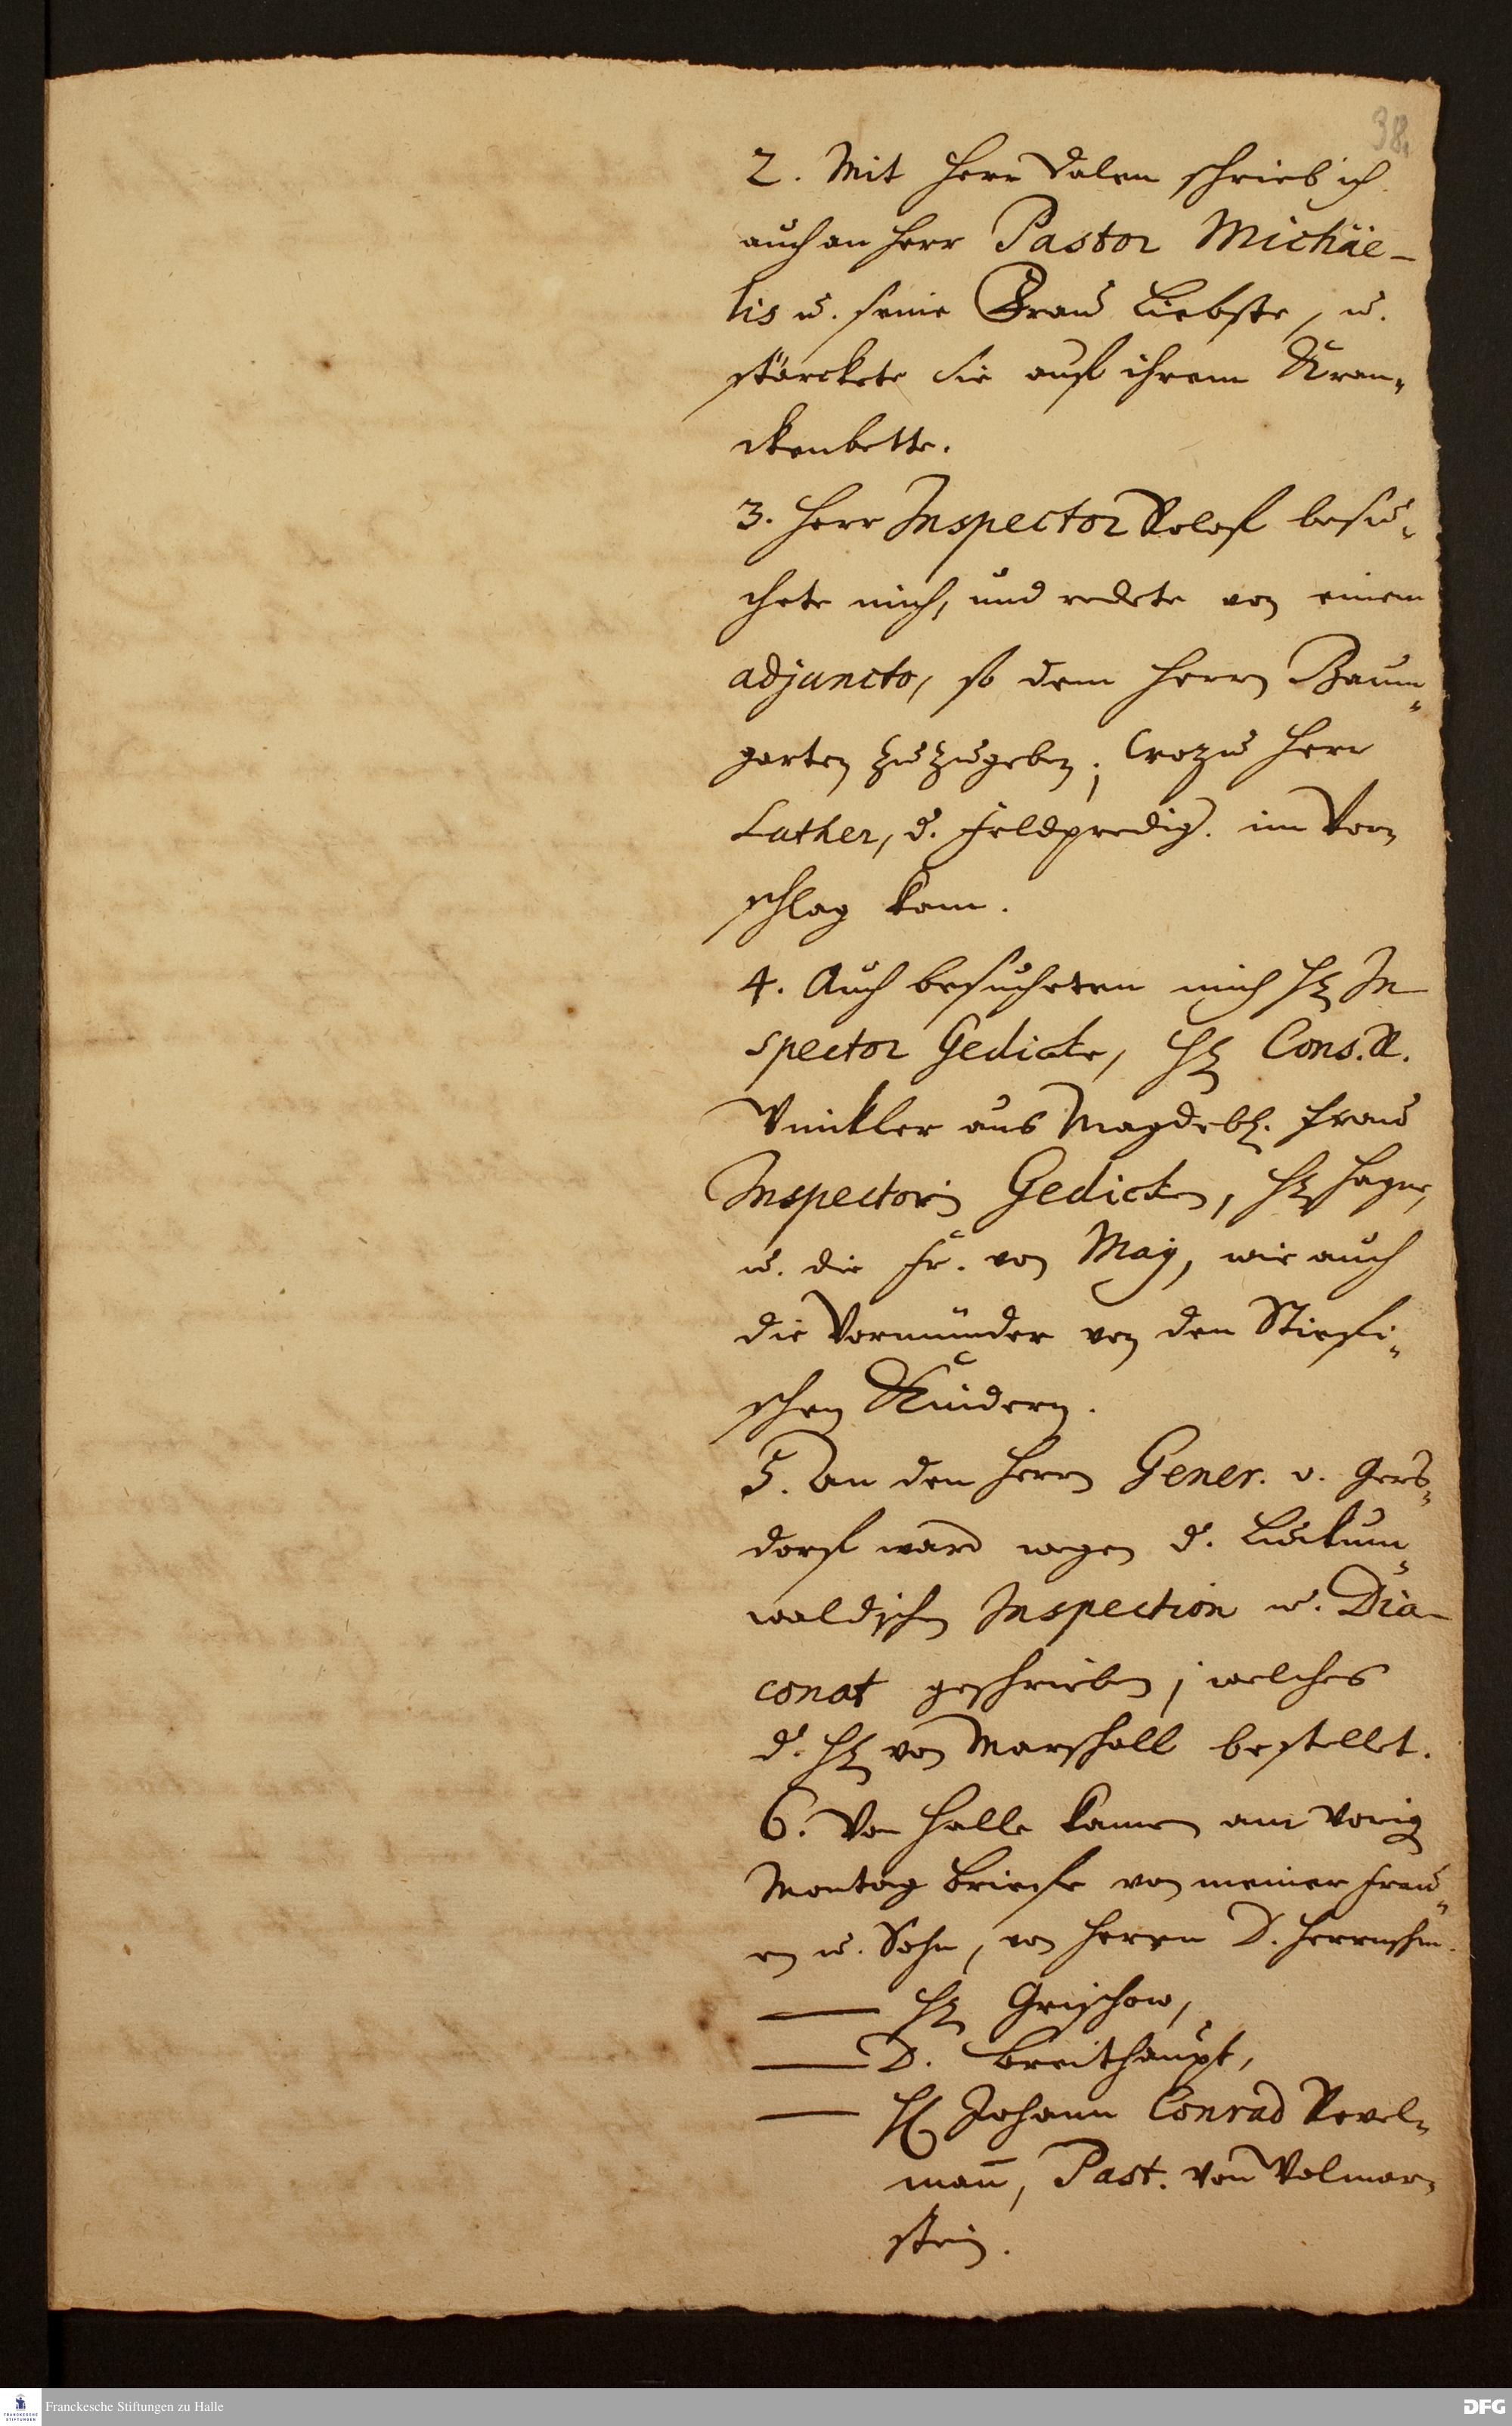 38.
2. Mit Herr Dalen schrieb ich
auch an Herr Pastor Michäe-
lis u. seine Frau Liebste, u.
stärckete sie auf ihrem Kran-
ckenbette.
3. Herr Inspector Rolof besu-
chete mich, und redete von einem
adjuncto, so dem Herrn Baum-
garten zuzugeben; wozu Herr
Luther, d. Feldpredig. im Vor-
schlag kam.
4. Auch besucheten mich H. In
spector Gedicke, H. Cons. R.
Winkler aus Magdeb. Frau
Inspectorin Gedicken, H.
u. die Fr. von May, wie auch
die Vormünder von den Stiefi-
schen Kindern.
5. An den Herrn Gener. v. Gers-
dorf ward wegen d. Luckum-
waldischen Inspection u. Dia-
conat geschrieben; welches
d. H. von Marschall bestellet.
6. Von Halle kamen am vorig
Montag Briefe von meiner Frau-
en u. Sohn, von Herrn D. Herrnschm.
— H. Grischow,
— D. Breithaupt,
— H. Johann Conrad Revel-
mañ, Past. von Volmar-
stein.
Franckesche Stiftungen zu Halle
DFG